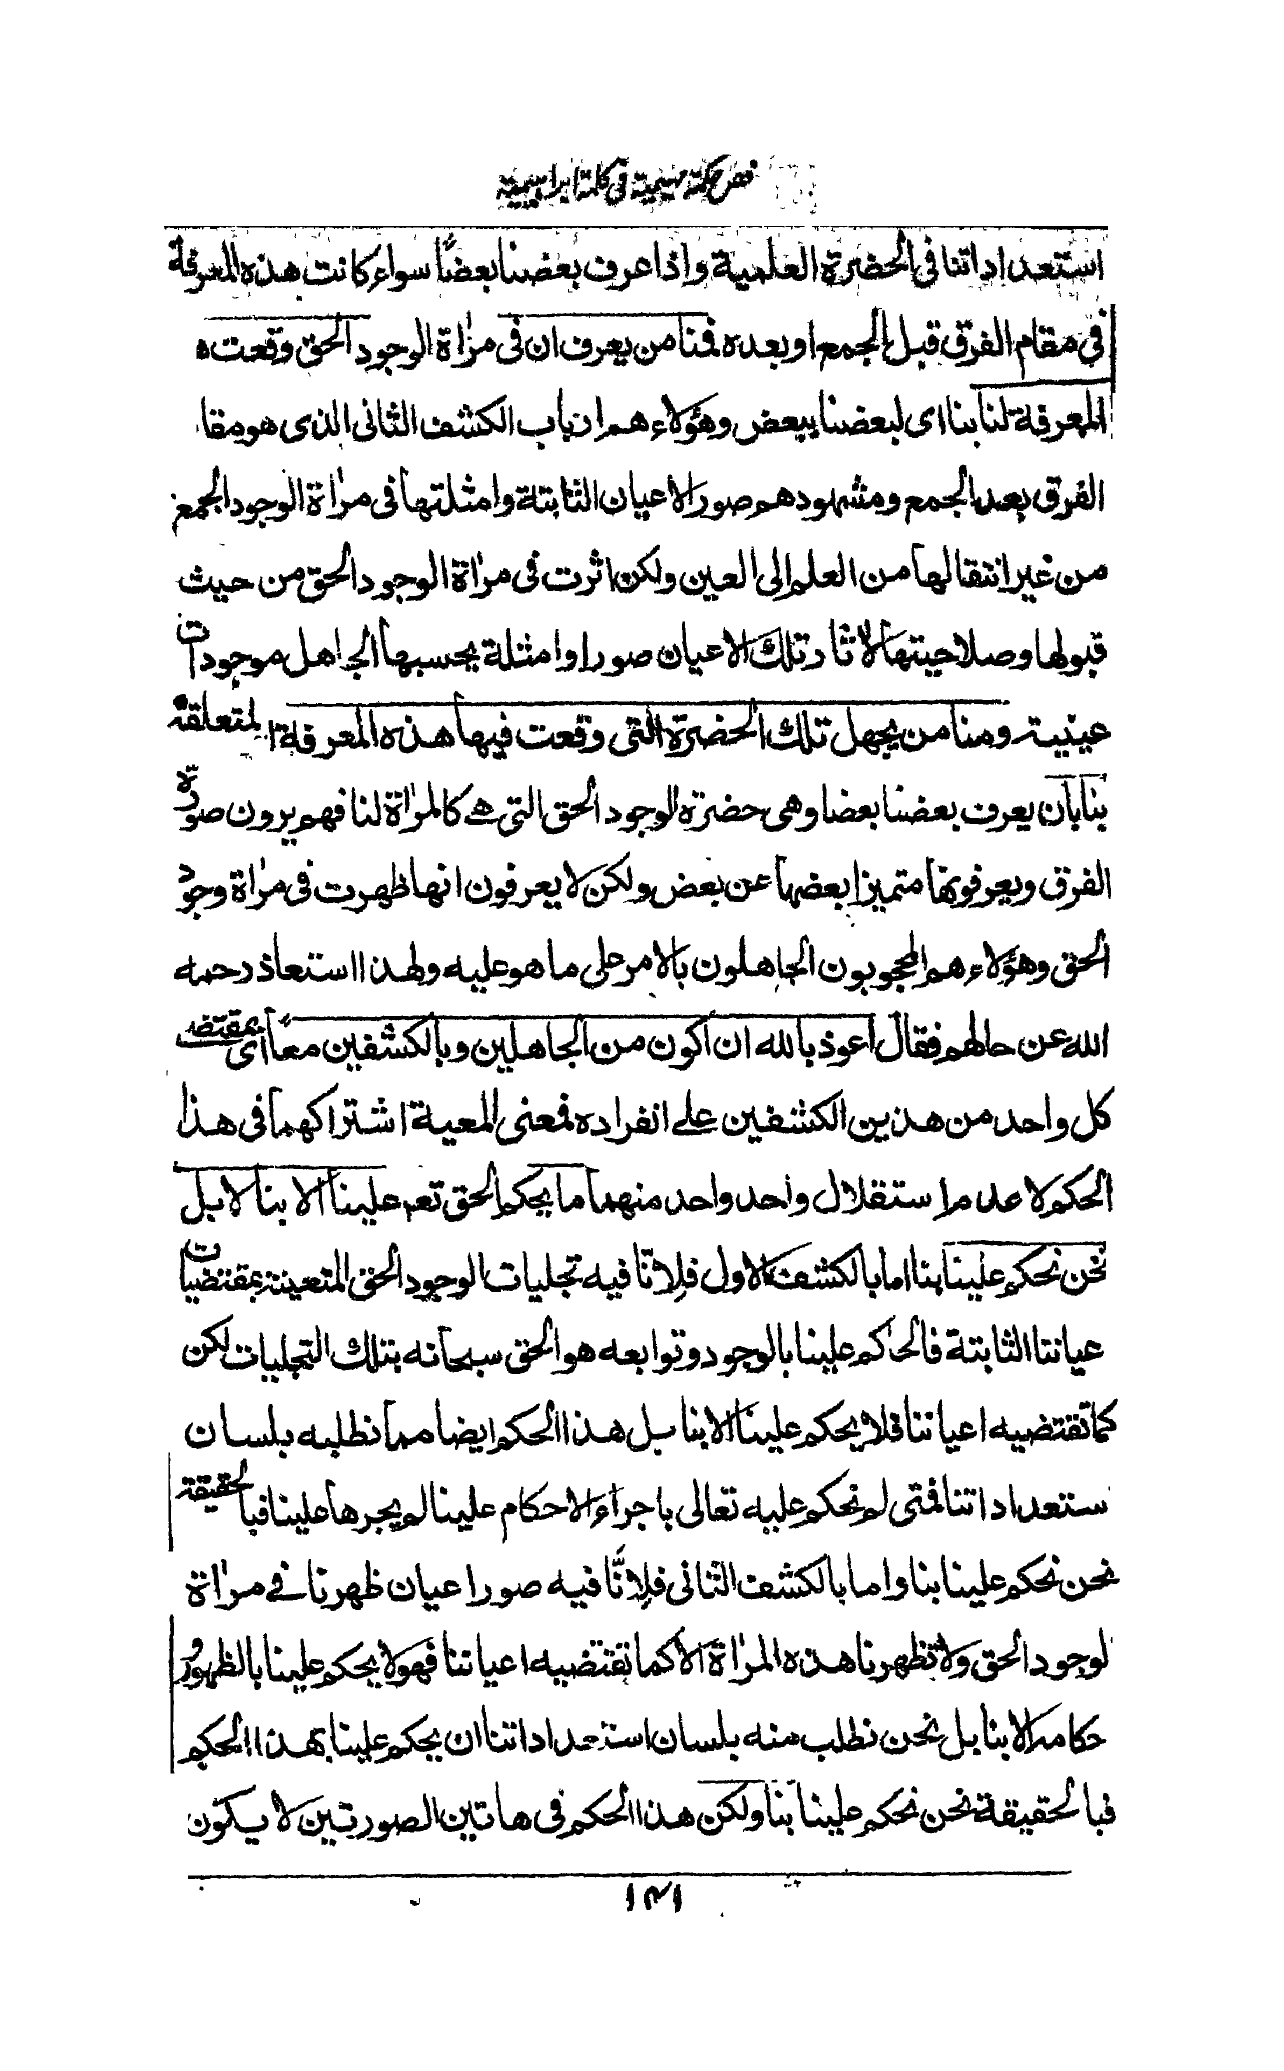 فص حكمة مهيمية في كلمة ابراهيمية
استعداداتنا في الحضرة العلمية واذا عرف بعضنا بعضًا سواء كانت هذه المعرفة
في مقام الفرق قبل الجمع او بعده فمنا من يعرف ان في مرأة الوجود الحق وقعت ه
المعرفة لنا بنا اى لبعضنا ببعض وهؤلاء هم ارباب الكشف الثاني الذى هو مقا
الفرق بعد الجمع ومشهودهم صور الاعيان الثابتة وامثلتها في مرأة الوجود الجمع
من غير انتقالها من العلم الى العين ولكن اثرت في مرأة الوجود الحق من حيث
قبولها وصلاحيتها لآثار تلك الاعيان صورا وامثلة يحسبها الجاهل موجودات
عينية ومنا من يجهل تلك الحضرة التى وقعت فيها هذه المعرفة المتعلقة
بنا بأن يعرف بعضنا بعضا وهى حضرة الوجود الحق التى هے كالمرأة لنا فهم يرون صورة
الفرق ويعرفونها متميزا بعضها عن بعض ولكن لا يعرفون انها ظهرت في مرأة وجود
الحق وهؤلاء هم المحجوبون الجاهلون بالامر على ما هو عليه ولهذا استعاذ رحمه
الله عن حالهم فقال أعوذ بالله ان أكون من الجاهلين وبالكشفين معًا أى بمقتضى
كل واحد من هذين الكشفين علے انفراده فمعنى المعية اشتراكهما في هذا
الحكم لا عدم استقلال واحد واحد منهما ما يحكم الحق تعم علينا الا بنا لا بل
نحن نحكم علينا بنا اما بالكشف الاول فلانّا فيه تجليات الوجود الحق المتعينة بمقتضيات
عياننا الثابتة فالحاكم علينا بالوجود وتوابعه هو الحق سبحانه بتلك التجليات لكن
كما تقتضيه اعياننا فلا يحكم علينا الا بنا بل هذا الحكم ايضا مما نطلبه بلسان
ستعداداتنا فمتى لم نحكم عليه تعالى باجراء الاحكام علينا لم يجرها علينا فبالحقيقة
نحن نحكم علينا بنا واما بالكشف الثاني فلانّا فيه صور اعيان ظهرنا في مرأة
لوجود الحق ولا تظهرنا هذه المرأة الا كما تقتضيه اعياننا فهو لا يحكم علينا بالظهور و
حكامه الا بنا بل نحن نطلب منه بلسان استعداداتنا ان يحكم علينا بهذا الحكم
فبالحقيقة نحن نحكم علينا بنا ولكن هذا الحكم في هاتين الصورتين لا يكون
١٣١